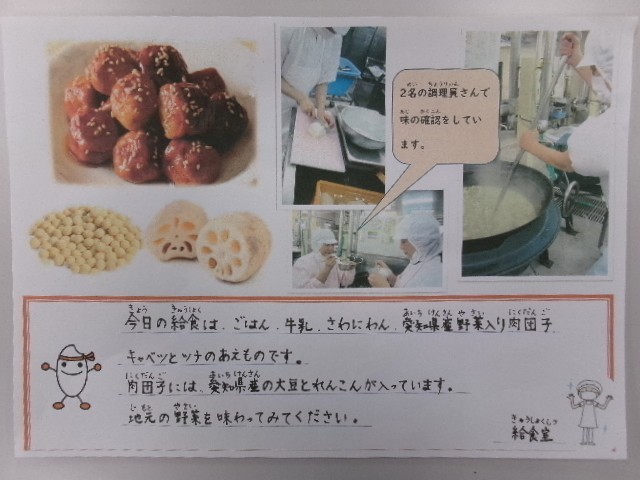 2名の調理員さんで
味の確認をしてい
ます。
今日の給食は、ごはん、牛乳、さわにわん、愛知県産野菜入り肉団子
キャベツとツナのあえものです。
肉団子には、愛知県産の大豆とれんこんが入っています。
地元の野菜を味わってみてください。
きゅうしょくしつ
給食室